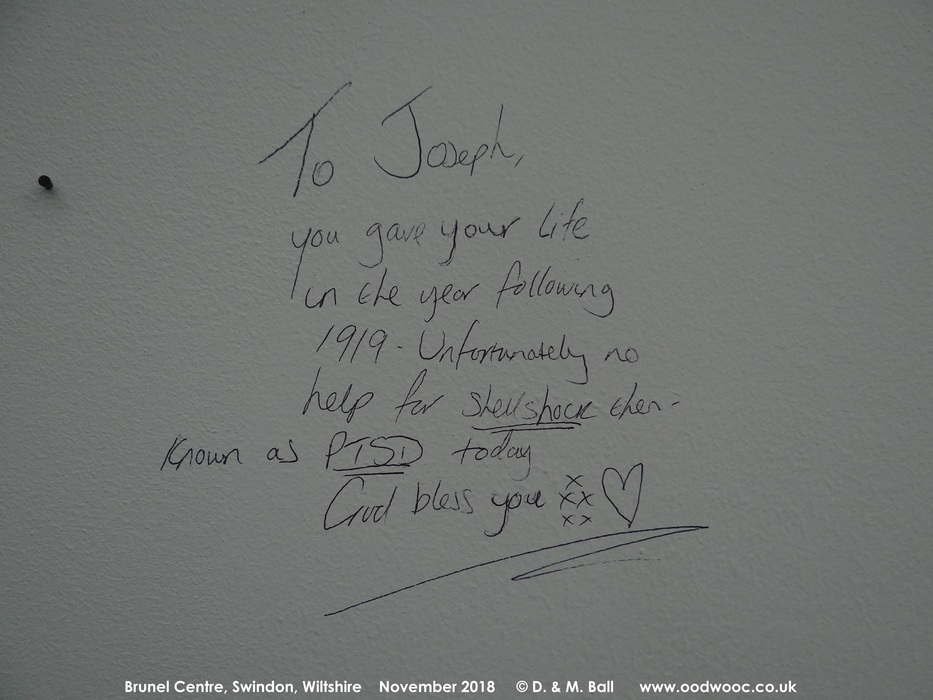 To Joseph,
you gave your life
in the year following
1919 - Unfortunately no
help for shellshock then -
Known as PTSD today
God bless you xx xx x ♡
Brunel Centre, Swindon, Wiltshire November 2018 © D. & M. Ball www.oodwooc.co.uk